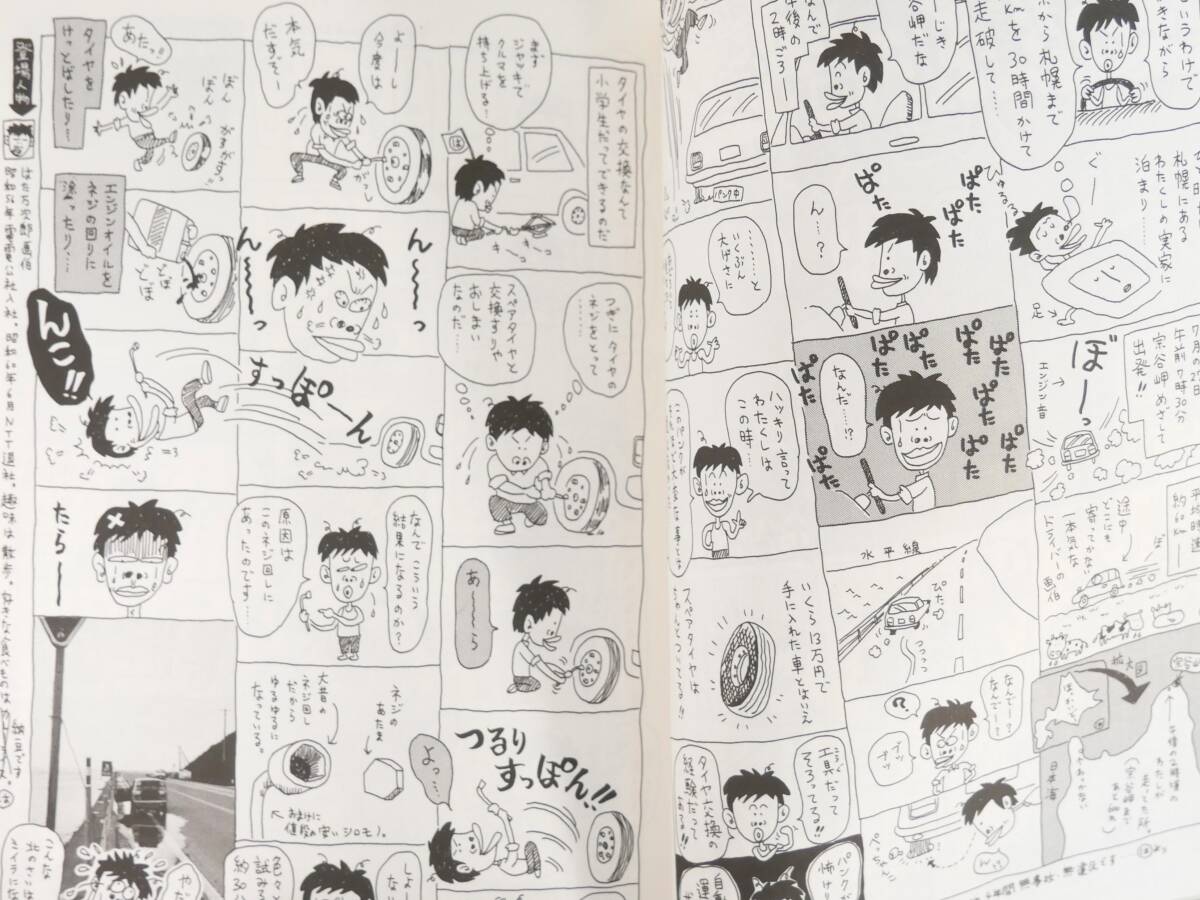 いうわけで
きながら
から札幌まで
kmを30時間かけて
走破して……
札幌にある
わたくしの実家に
泊まり……
ぐー
足
午前7時30分
宗谷岬めざして
出発!!
ぼーっ
エンジン音
途中
どこにも
寄ってかない
一本気な
ドライバーの
画伯
拡大図
日本海
なんで
じき
谷岬だな
午後の
2時ごろ
ひゅるるる
ん…?
ぱた
ぱた
ぱた
ぱた
なんだ……!?
ぱた
ぱた
ぱた
ぱた
ぱた
ぱた
ぱた
ぱた
ぱた
水平線
ぴたっ
つつつつ
なんで?
なんでー?
?
パンク中
……と
いくぶん
大げさに
ハッキリ言って
わたくしは
この時…
いくら13万円で
手に入れた車とはいえ
スペアタイヤは
ちゃんとついてる!!
工具だって
そろってる!!
タイヤ交換の
経験だって
ある!!
パンクが
怖けり
自動
運
タイヤの交換なんて
小学生だってできるのだ
まず
ジャッキで
クルマを
持ち上げる…
は
キーコ
キーコ
つぎにタイヤの
ネジをとって
………
スペアタイヤと
交換すりゃ
おしまい
なのだ……
あ〜〜ら
つるり
すっぽん!!
よっ…
よーし
今度は
本気
だすぞ〜
がしっ
ん〜〜っ
ん〜〜っ
すっぽーん
なんでこういう
結果になるのか?
原因は
このネジ回しに
あったのです…
ネジの
あたま
大昔の
ネジ回し
だから
ゆるゆるに
なっている。
おまけに
値段の安いシロモノ。
しょう
ない
色々と
試みる
約30分
あたっ!!
ぼん
ぼん
タイヤを
けっとばしたり…
エンジンオイルを
ネジの回りに
塗ったり、…
どぼ
どぼ
んこ!!
たら〜〜
こんな
北のさいは
ミイラにな
やだ
登場人物
はた万次郎画伯
昭和56年電電公社入社。昭和60年6月NTT退社。趣味は散歩。好きな食べものはカレーライス。